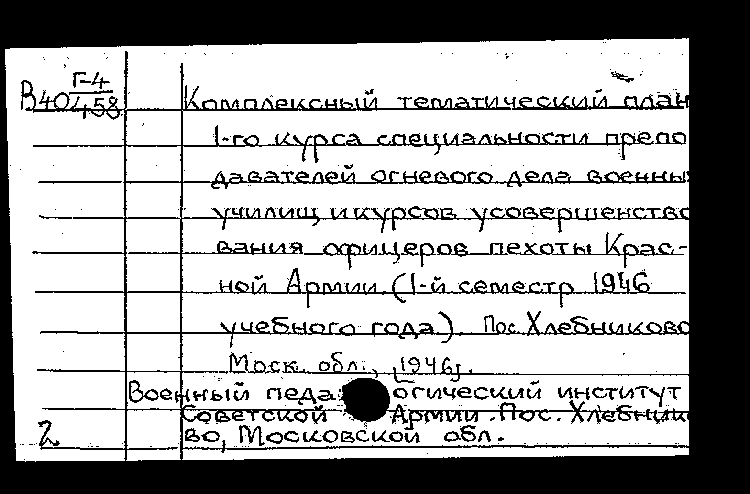 Г-4
В40458
Комплексный тематический план
1-го курса специальности препо
давателей огневого дела военны
училищ и курсов усовершенство
вания офицеров пехоты Крас-
ной Армии (1-й семестр 1946
учебного года). Пос. Хлебниково
Моск. обл., [1946].
Военный педагогический институт
Советской Армии. Пос. Хлебнико
во, Московской обл.
2